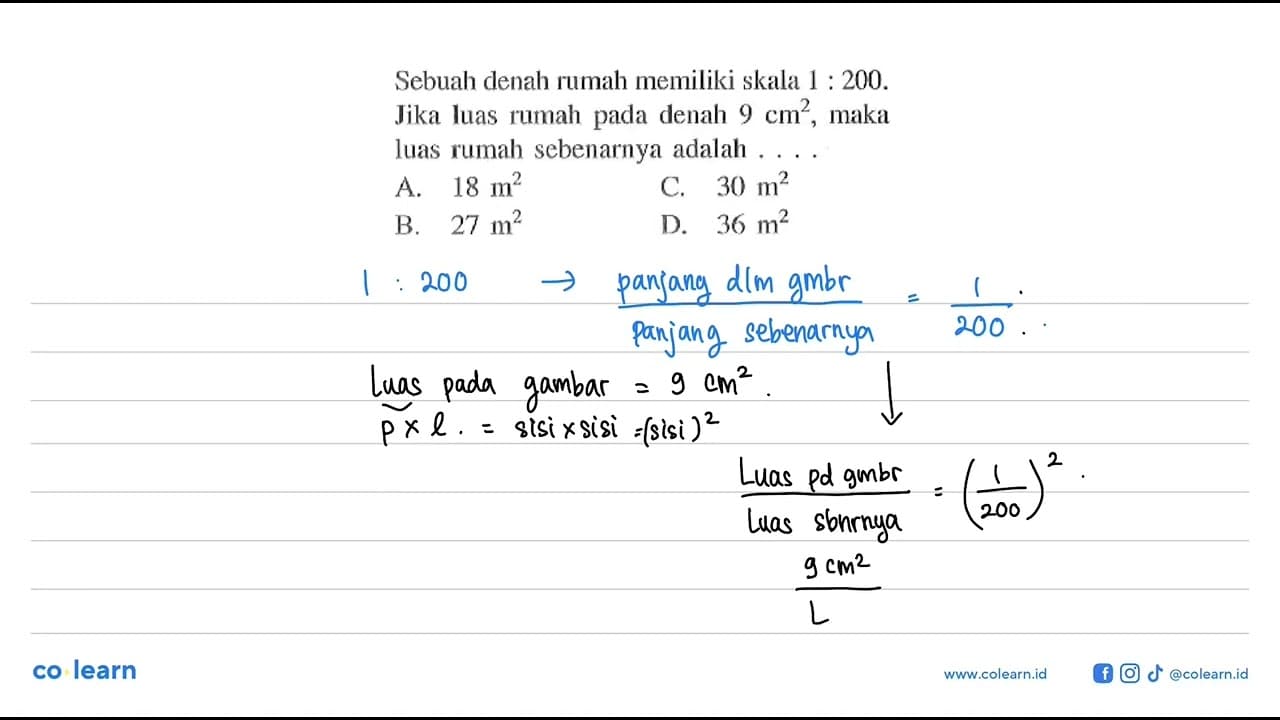 Sebuah denah rumah memiliki skala 1 : 200.
Jika luas rumah pada denah 9 cm², maka
luas rumah sebenarnya adalah . . . .
A. 18 m² C. 30 m²
B. 27 m² D. 36 m²
1 : 200 → panjang dlm gmbr / panjang sebenarnya = 1 / 200
Luas pada gambar = 9 cm².
p x l. = sisi x sisi = (sisi)²
Luas pd gmbr / Luas sbnrnya = (1 / 200)²
9 cm² / L
co learn
www.colearn.id @colearn.id